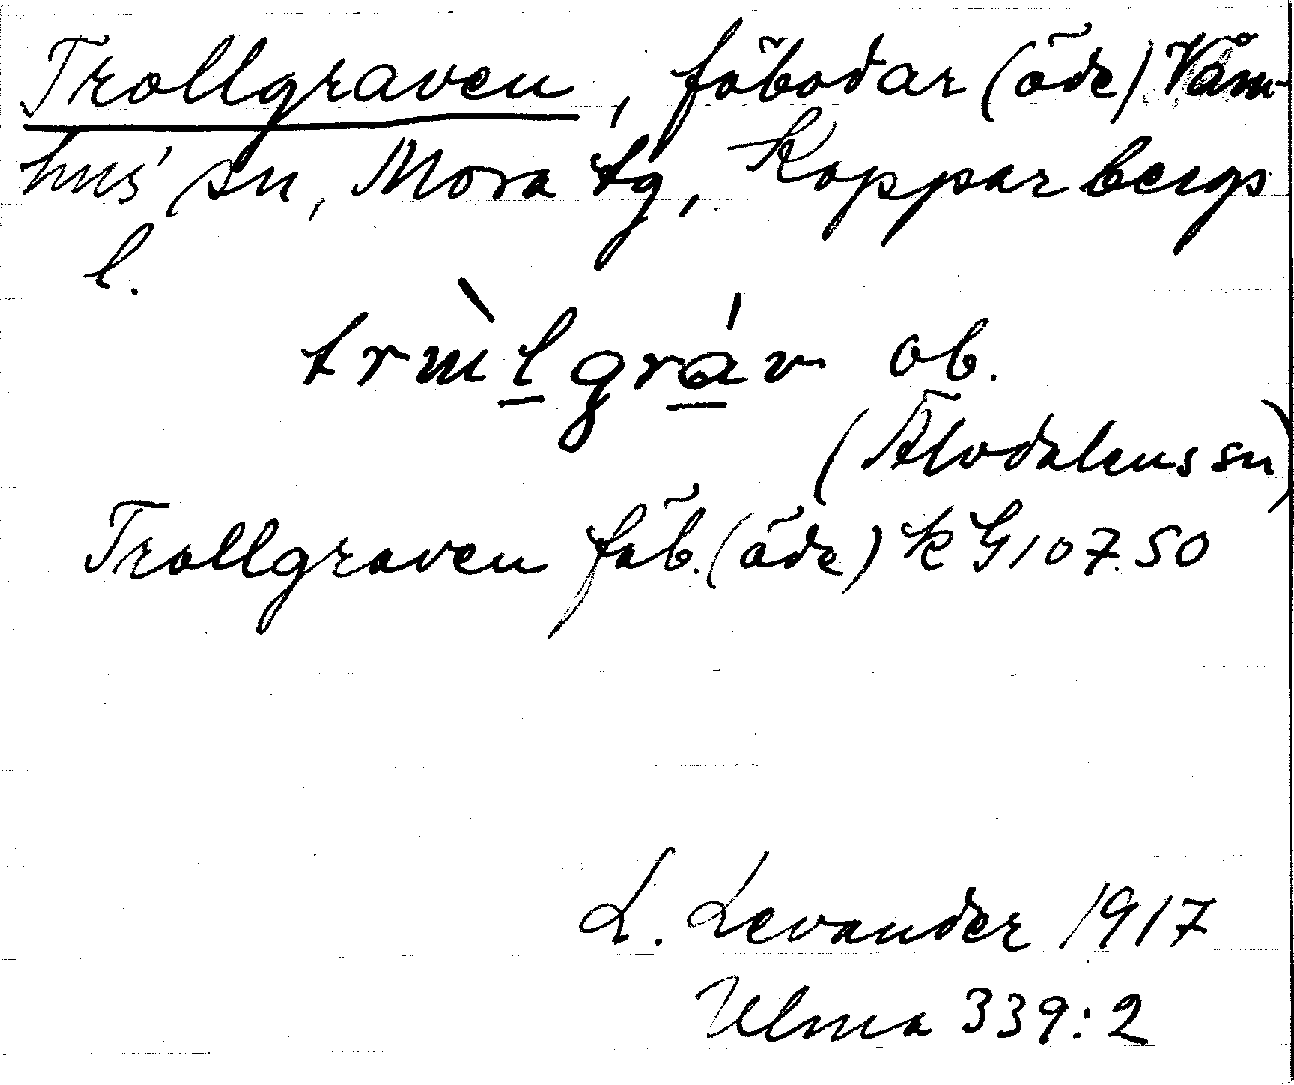 Trollgraven, fäbodar (öde) Våm-
hus sn, Mora tg, Kopparbergs
l.
ob.
(Älvdalens sn)
Trollgraven fäb. (öde) k G 107.50
L. Levander 1917
Ulma 339:2